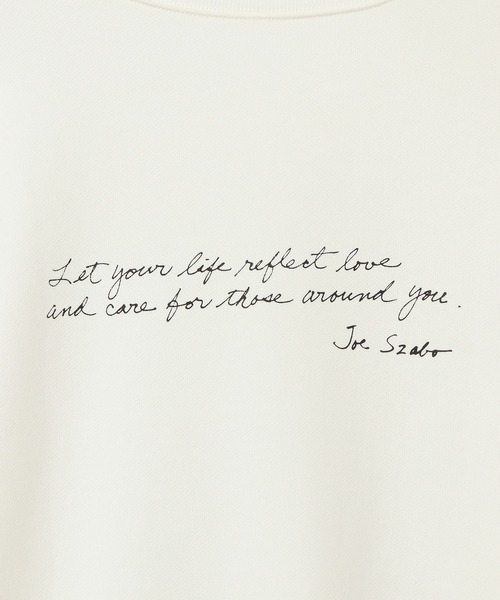 Let your life reflect love
and care for those around you.
Joe Szabo